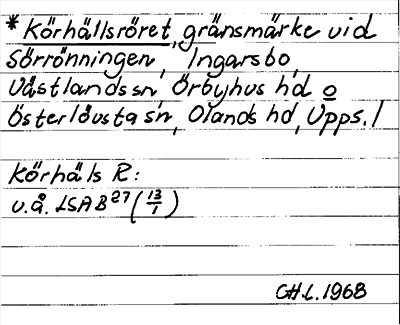 *Körhällsröret, gränsmärke vid
Sörrönningen, Ingarsbo,
Västlands sn, Örbyhus hd o
Österlövsta sn, Olands hd, Upps. l
Körhäls R:
u.å. LSA B²⁷ (13/1)
CH.L. 1968